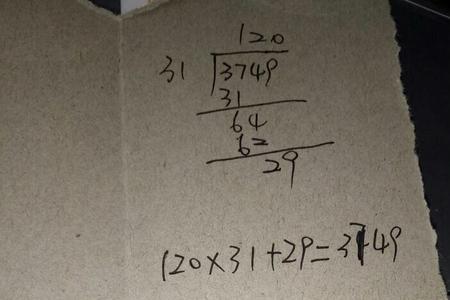 120
31 3749
31
64
62
29
120×31+29=3749